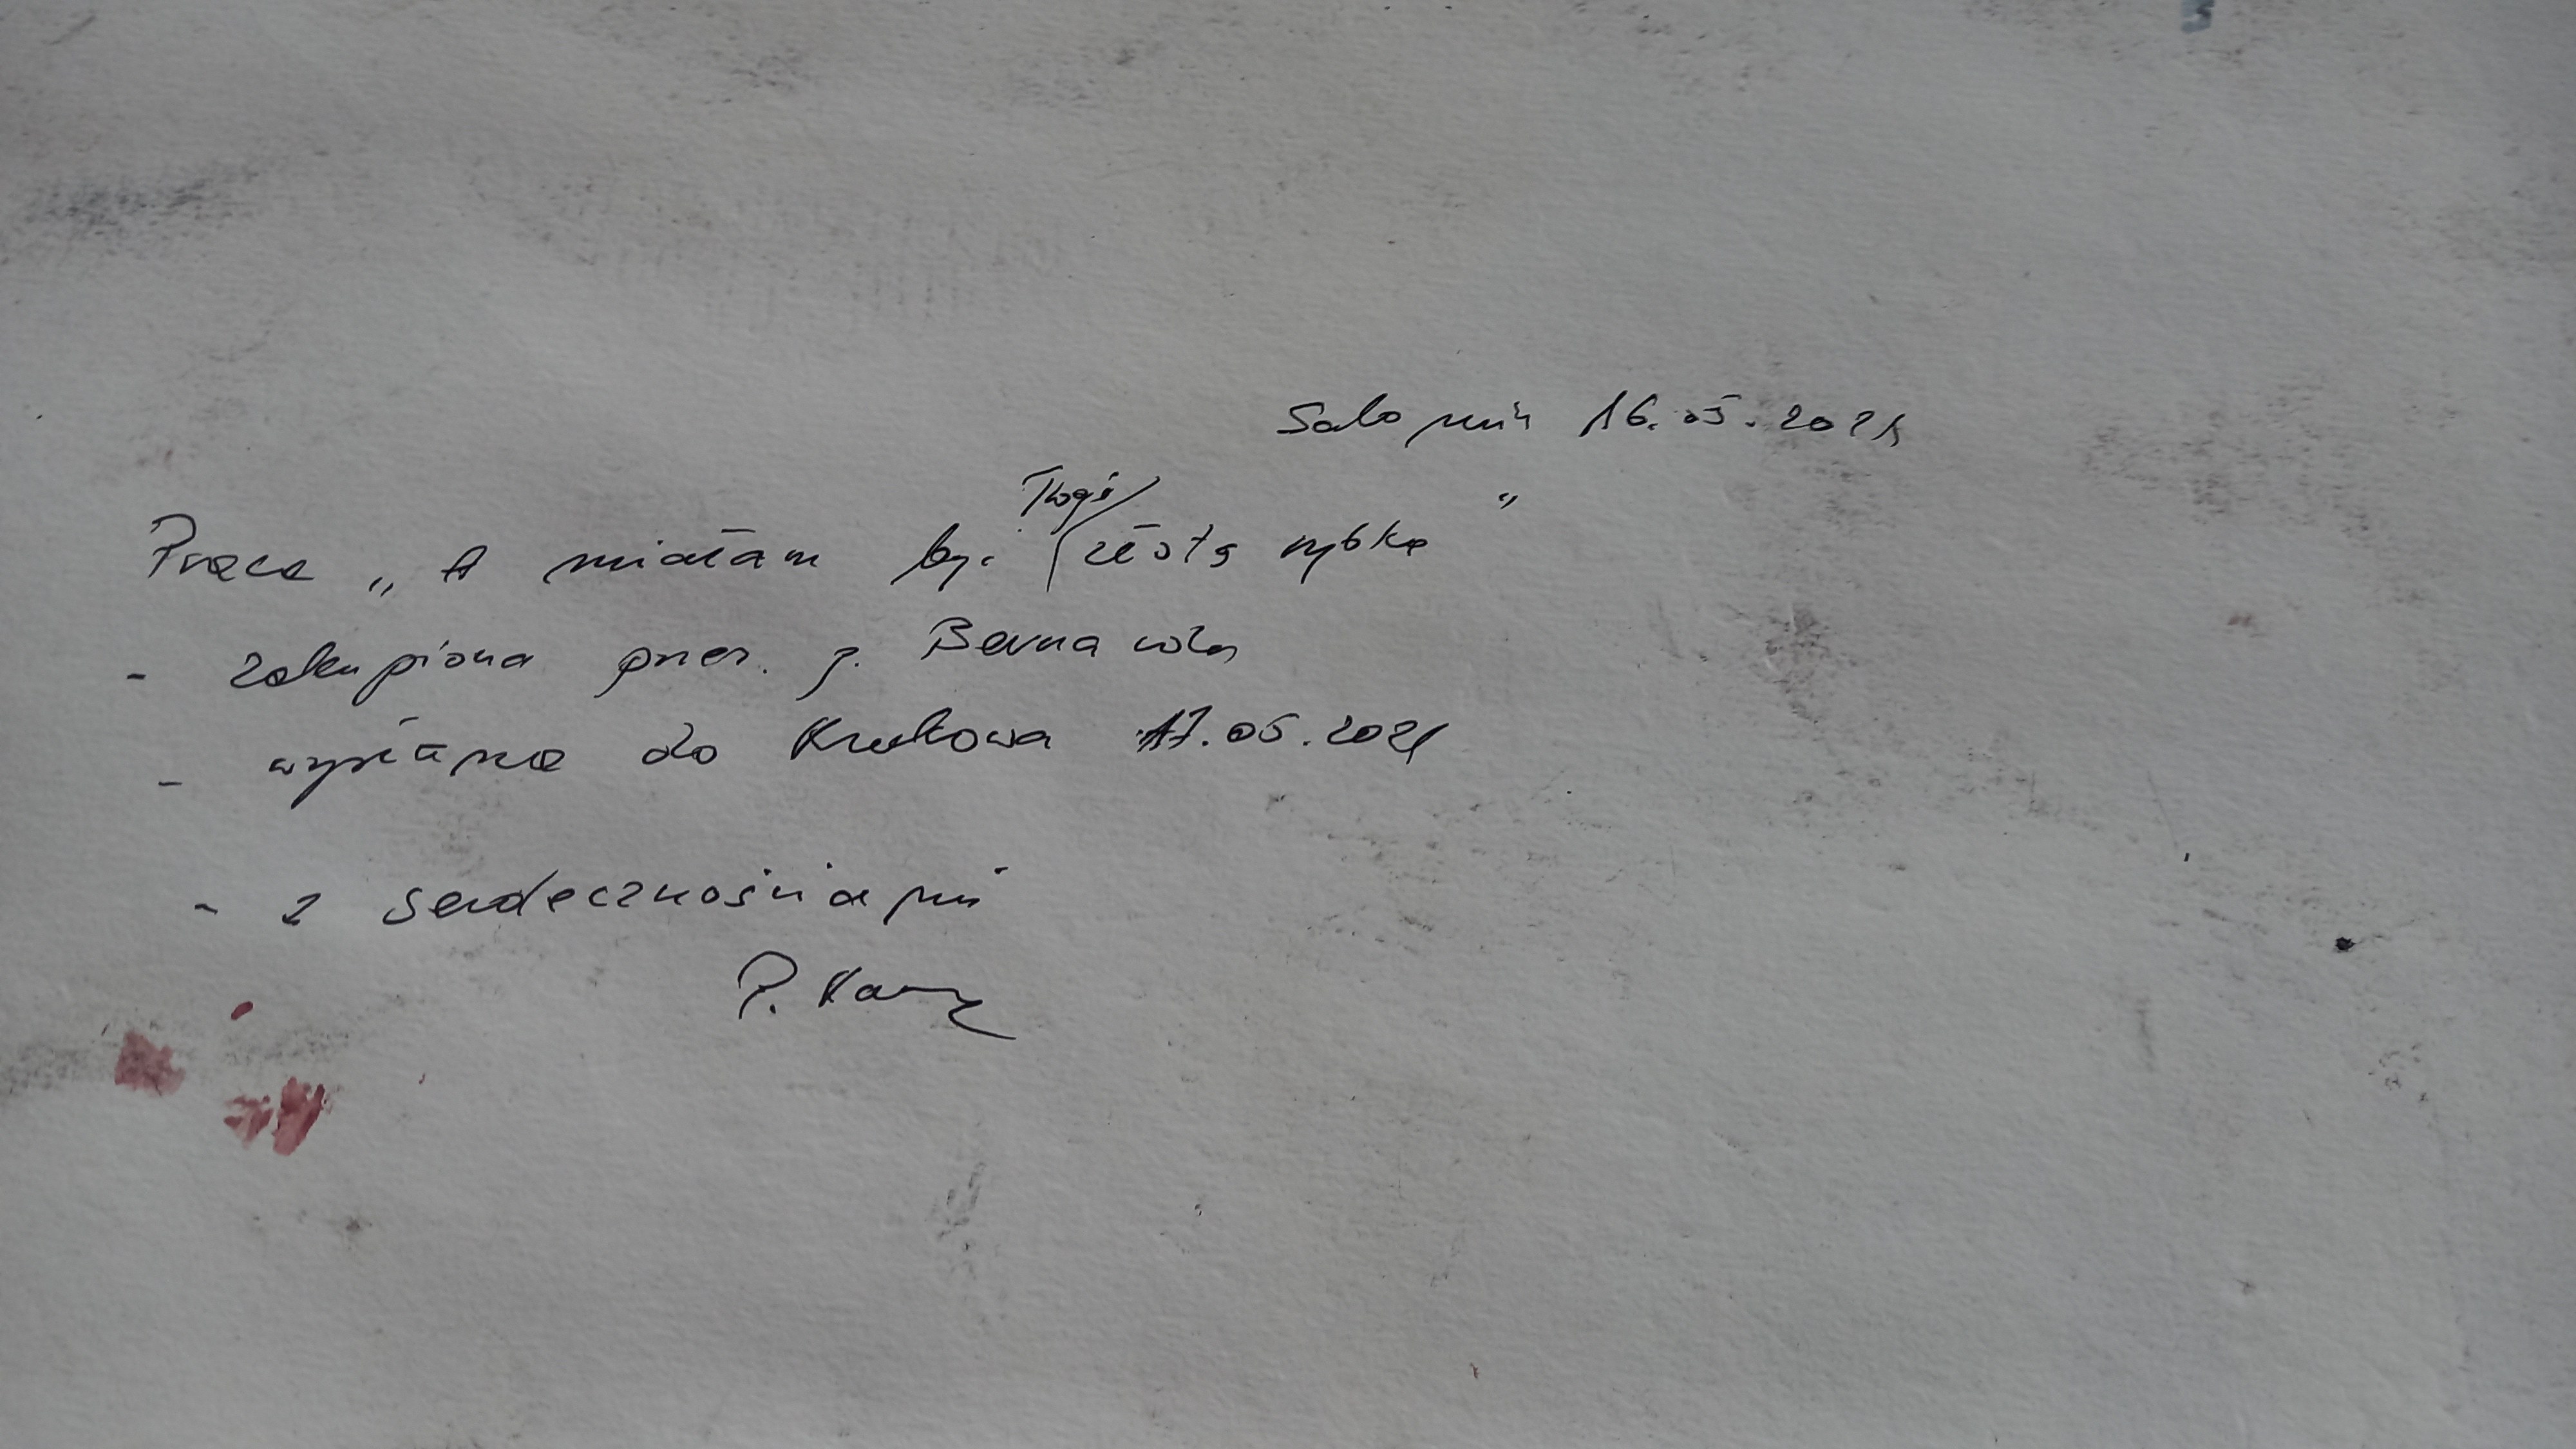 Salomin 16.05.2021
Twoją
Praca „A miałam być złotą rybką"
- zakupiona przez p.
- wysłana do Krakowa 17.05.2021
- z serdecznościami
P.